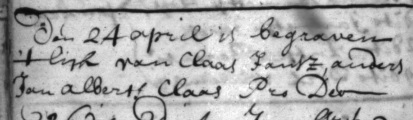 Den 24 april is begraven
t lijk van Claas Jansz, anders
Jan alberts Claas Pro Deo